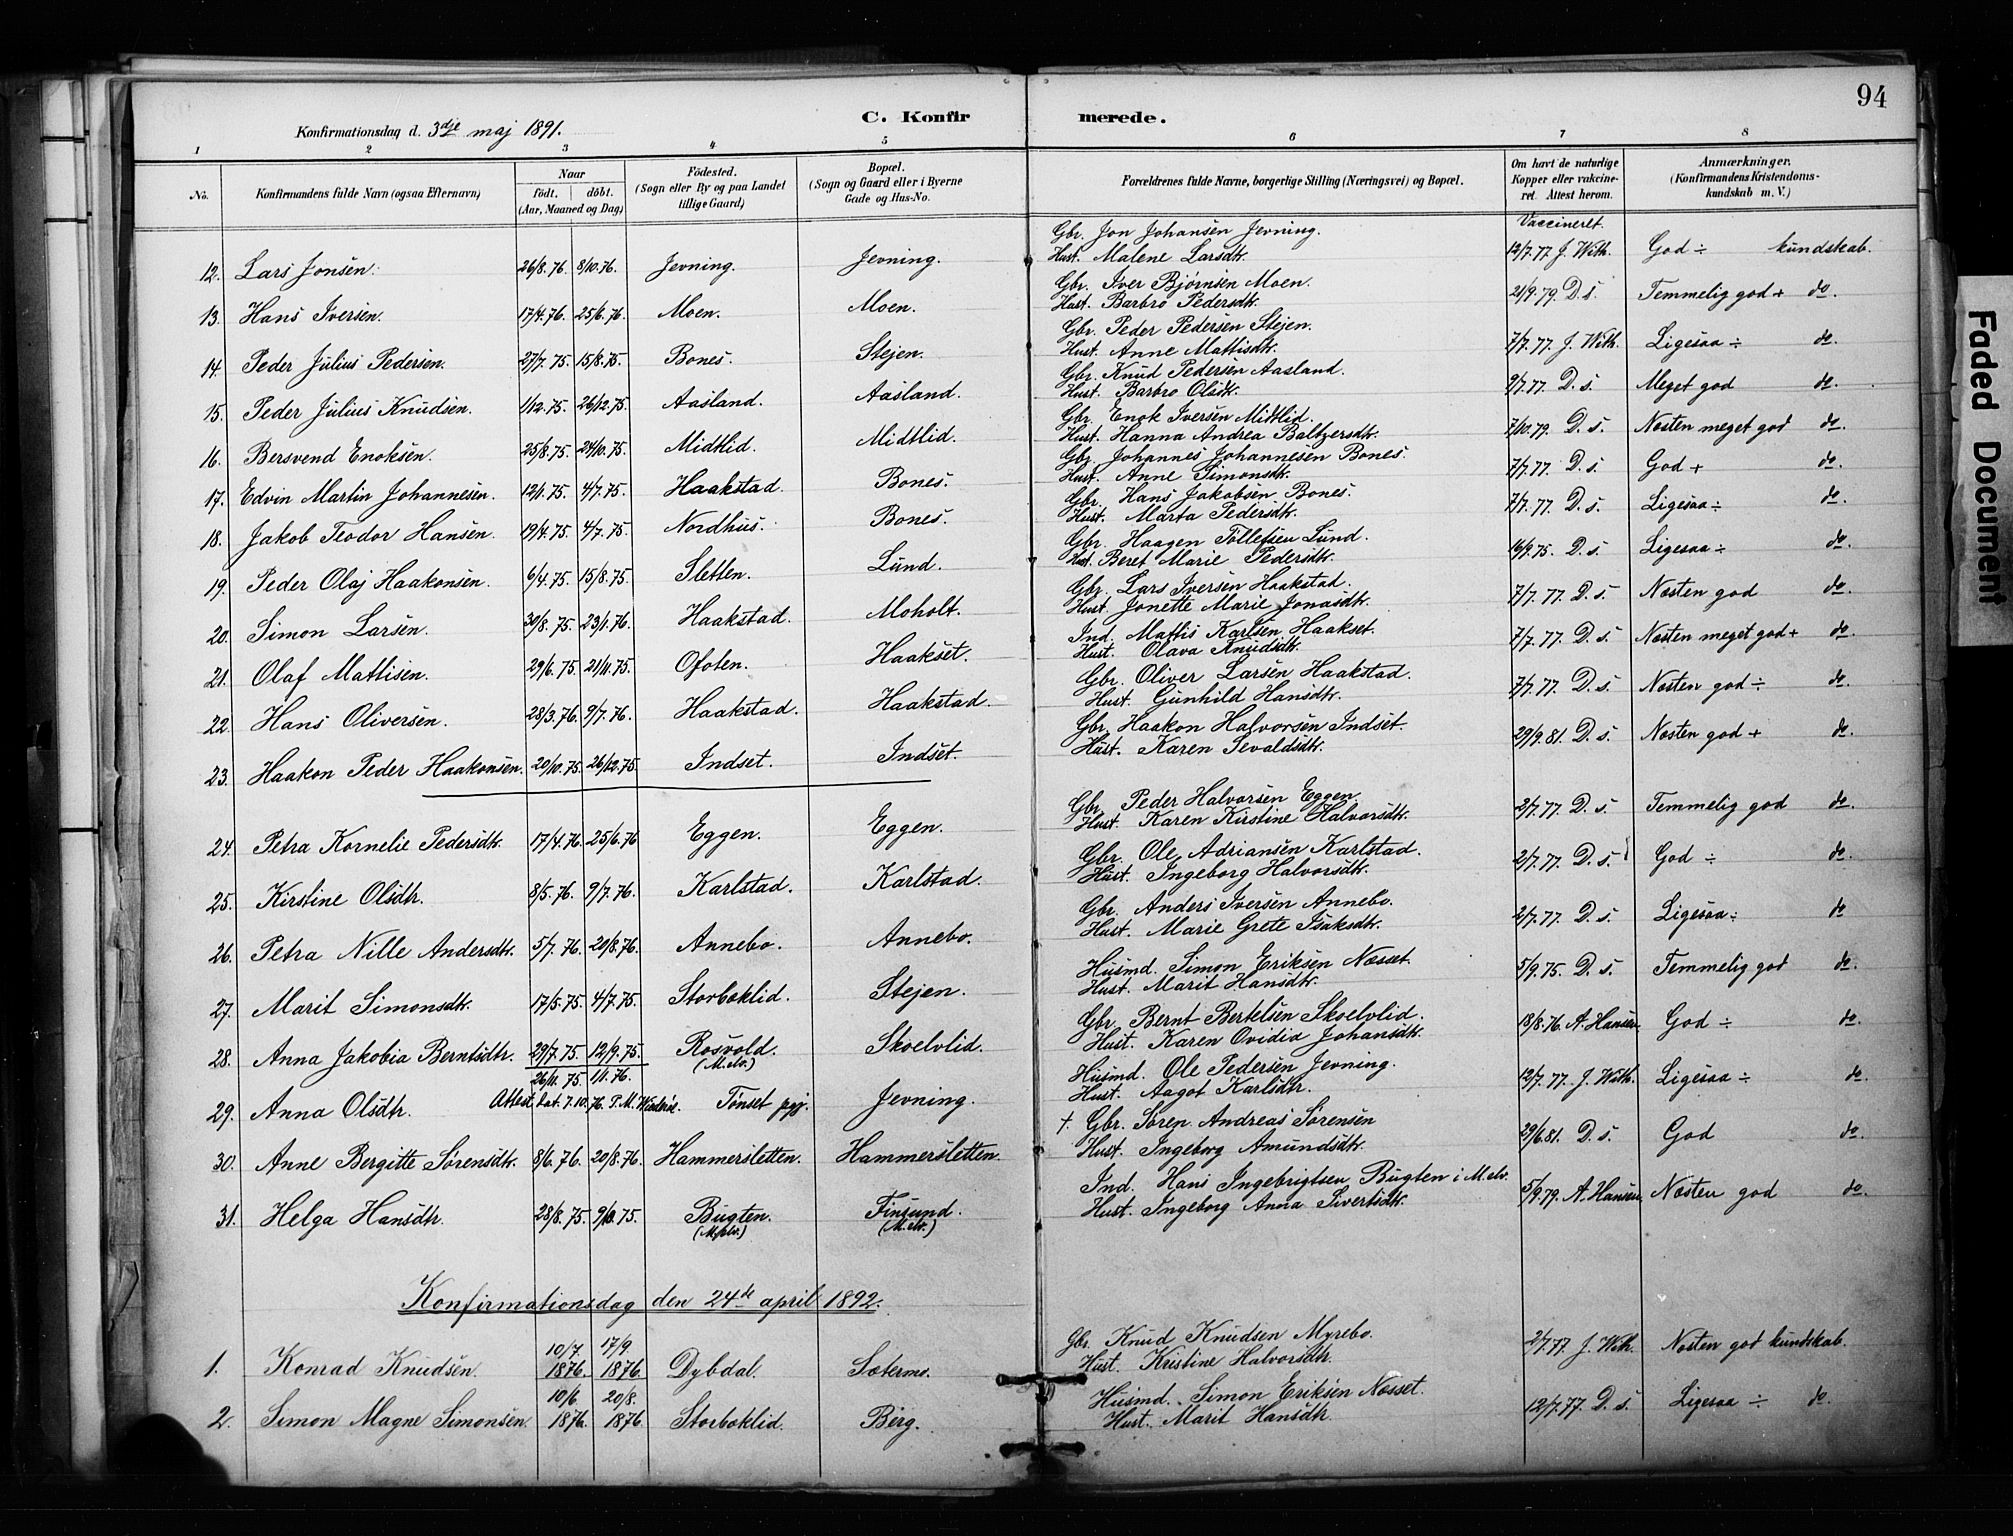 94
Konfirmationsdag d. 3dje maj 1891.
C. Konfir merede.
1 2 3 4 5 6 7 8
No. Konfirmandens fulde Navn (ogsaa Efternavn) Naar født. døbt. (Aar, Maaned og Dag) Fødested. (Sogn eller By og paa Landet tillige Gaard) Bopæl. (Sogn og Gaard eller i Byerne Gade og Hus-No. Forældrenes fulde Navne, borgerlige Stilling (Næringsvei) og Bopæl. Om havt de naturlige Kopper eller vakcineret. Attest herom. Anmærkninger. (Konfirmandens Kristendomskundskab m. V.)
Vaccineret.
12. Lars Jonsen. 26/8.76. 8/10.76. Jevning. Jevning. Gbr. Jon Johansen Jevning. Hust. Malene Larsdtr. 12/7.77 J. With. God ÷ kundskab.
13. Hans Iversen. 17/4.76. 25/6.76. Moen. Moen. Gbr. Iver Bjørnsen Moen. Hust. Barbro Pedersdtr. 21/9.79. D. s. Temmelig god + do.
14. Peder Julius Pedersen. 27/7.75. 15/8.75. Bones. Stejen. Gbr. Peder Pedersen Stejen. Hust. Anne Mattisdtr. 7/7.77. J. With. Ligesaa ÷ do.
15. Peder Julius Knudsen. 1/12.75. 26/12.75. Aasland. Aasland. Gbr. Knud Pedersen Aasland. Hust. Barbro Olsdtr. 9/7.77. D. s. Meget god do.
16. Bersvend Enoksen. 25/8.75. 24/10.75. Midtlid. Midtlid. Gbr. Enok Iversen Midtlid. Hust. Hanna Andrea Baltzersdtr. 7/10.79. D. s. Næsten meget god do.
17. Edvin Martin Johannesen. 12/1.75. 4/7.75. Haakstad. Bones. Gbr. Johannes Johannesen Bones. Hust. Anne Simonsdtr. 7/7.77. D. s. God + do.
18. Jakob Teodor Hansen. 19/4.75. 4/7.75. Nordhus. Bones. Gbr. Hans Jakobsen Bones. Hust. Marta Pedersdtr. 7/7.77. D. s. Ligesaa ÷ do.
19. Peder Olaj Haakonsen. 6/4.75. 15/8.75. Sletten. Lund. Gbr. Haagen Tollefsen Lund. Hust. Beret Marie Pedersdtr. 16/9.75. D. s. Ligesaa ÷ do.
20. Simon Larsen. 30/8.75. 23/1.76. Haakstad. Moholt. Gbr. Lars Iversen Haakstad. Hust. Jonette Marie Jonasdtr. 7/7.77. D. s. Næsten god do.
21. Olaf Mattisen. 29/6.75. 21/11.75. Ofoten. Haakset. Ind. Mattis Karlsen Haakset. Hust. Olava Knudsdtr. 7/7.77. D. s. Næsten meget god + do.
22. Hans Oliversen. 28/3.76. 9/7.76. Haakstad. Haakstad. Gbr. Oliver Larsen Haakstad. Hust. Gunhild Hansdtr. 7/7.77. D. s. Næsten god ÷ do.
23. Haakon Peder Haakonsen. 20/10.75. 26/12.75. Indset. Indset. Gbr. Haakon Halvorsen Indset. Hust. Karen Sevaldsdtr. 29/9.81. D. s. Næsten god + do.
24. Petra Kornelie Pedersdtr. 17/4.76. 25/6.76 Eggen. Eggen. Gbr. Peder Halvorsen Eggen. Hust. Karen Kirstine Halvorsdtr. 2/7.77. D. s. Temmelig god do.
25. Kirstine Olsdtr. 8/5.76. 9/7.76. Karlstad. Karlstad. Gbr. Ole Adriansen Karlstad. Hust. Ingeborg Halvorsdtr. 2/7.77. D. s. God ÷ do.
26. Petra Nille Andersdtr. 5/7.76. 20/8.76. Annebo. Annebo. Gbr. Anders Iversen Annebo. Hust. Marie Grete Isaksdtr. 2/7.77. D. s. Ligesaa ÷ do
27. Marit Simonsdtr. 17/5.75. 4/7.75. Storbæklid. Stejen. Husmd. Simon Eriksen Næsset. Hust. Marit Hansdtr. 5/9.75. D. s. Temmelig god do.
28. Anna Jakobia Berntsdtr. 29/7.75. 12/9.75. Rosvold. (M.elv.) Skoelvlid. Gbr. Bernt Bertelsen Skoelvlid. Hust. Karen Ovidia Johansdtr. 18/8.76. A. Hansen. God ÷ do.
29. Anna Olsdtr. 26/11.75 1/1.76. Attest dat. 7.10.76. P. M. Tønset pgj. Jevning. Husmd. Ole Pedersen Jevning. Hust. Aagot Karlsdtr. 12/7.77. J. With. Ligesaa ÷ do.
30. Anne Bergitte Sørensdtr. 8/6.76. 20/8.76. Hammersletten. Hammersletten. †. Gbr. Søren Andreas Sørensen Hust. Ingeborg Amundsdtr. 29/6.81. D. s. God do.
31. Helga Hansdtr. 28/8.75. 75. Bugten. (M.elv.) Finsund. (M.elv.) Ind. Hans Ingebrigtsen Bugten i M.elv. Hust. Ingeborg Anna Sivertsdtr. 5/9.79. A. Hansen. Næsten god do.
Konfirmationsdag den 24de april 1892.
1. Konrad Knudsen. 10/7. 1876. 17/9. 1876. Dybdal. Sætermo. Gbr. Knud Knudsen Myrebo. Hust. Kristine Halvorsdtr. 2/7.77. J. With. Næsten god kundskab.
2. Simon Magne Simonsen. 10/6. 1876. 20/8. 1876. Storbæklid. Berg. Husmd. Simon Eriksen Næsset. Hust. Marit Hansdtr. 12/7.77. D. s. Ligesaa ÷ do.
Faded Document